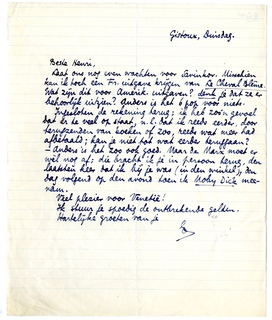 Gistoux, Dinsdag.
Beste Henri,
Laat ons nog even wachten voor Savinkov. Misschien
kan ik toch een Fr. uitgave krijgen van Le Cheval Blême.
Wat zijn dit voor Amerik. uitgaven? denk je dat ze er
behoorlijk uitzien? Anders is het 6 gld voor niets.
Ingesloten de rekening terug; ik heb zoo'n gevoel
dat er te veel op staat, n.l. dat ik reeds eerder, door
terugzenden van boeken of zoo, reeds wat meer had
afbetaald; kan je niet tot wat eerder teruggaan?
- Anders is het zoo ook goed. Maar de Nara moet er
wel nog af; die bracht ik je in persoon terug, den
laatsten keer dat ik bij je was (in den winkel), den
dag volgend op den avond toen ik Moby Dick mee-
nam.
Veel plezier voor Venetië!
Ik stuur je spoedig de ontbrekende gelden.
Hartelijke groeten van je